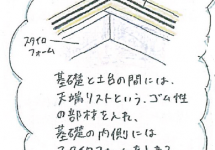 スタイロ
フォーム
基礎と土台の間には、
天端リストという、ゴム性
の部材を入れ、
基礎の内側には